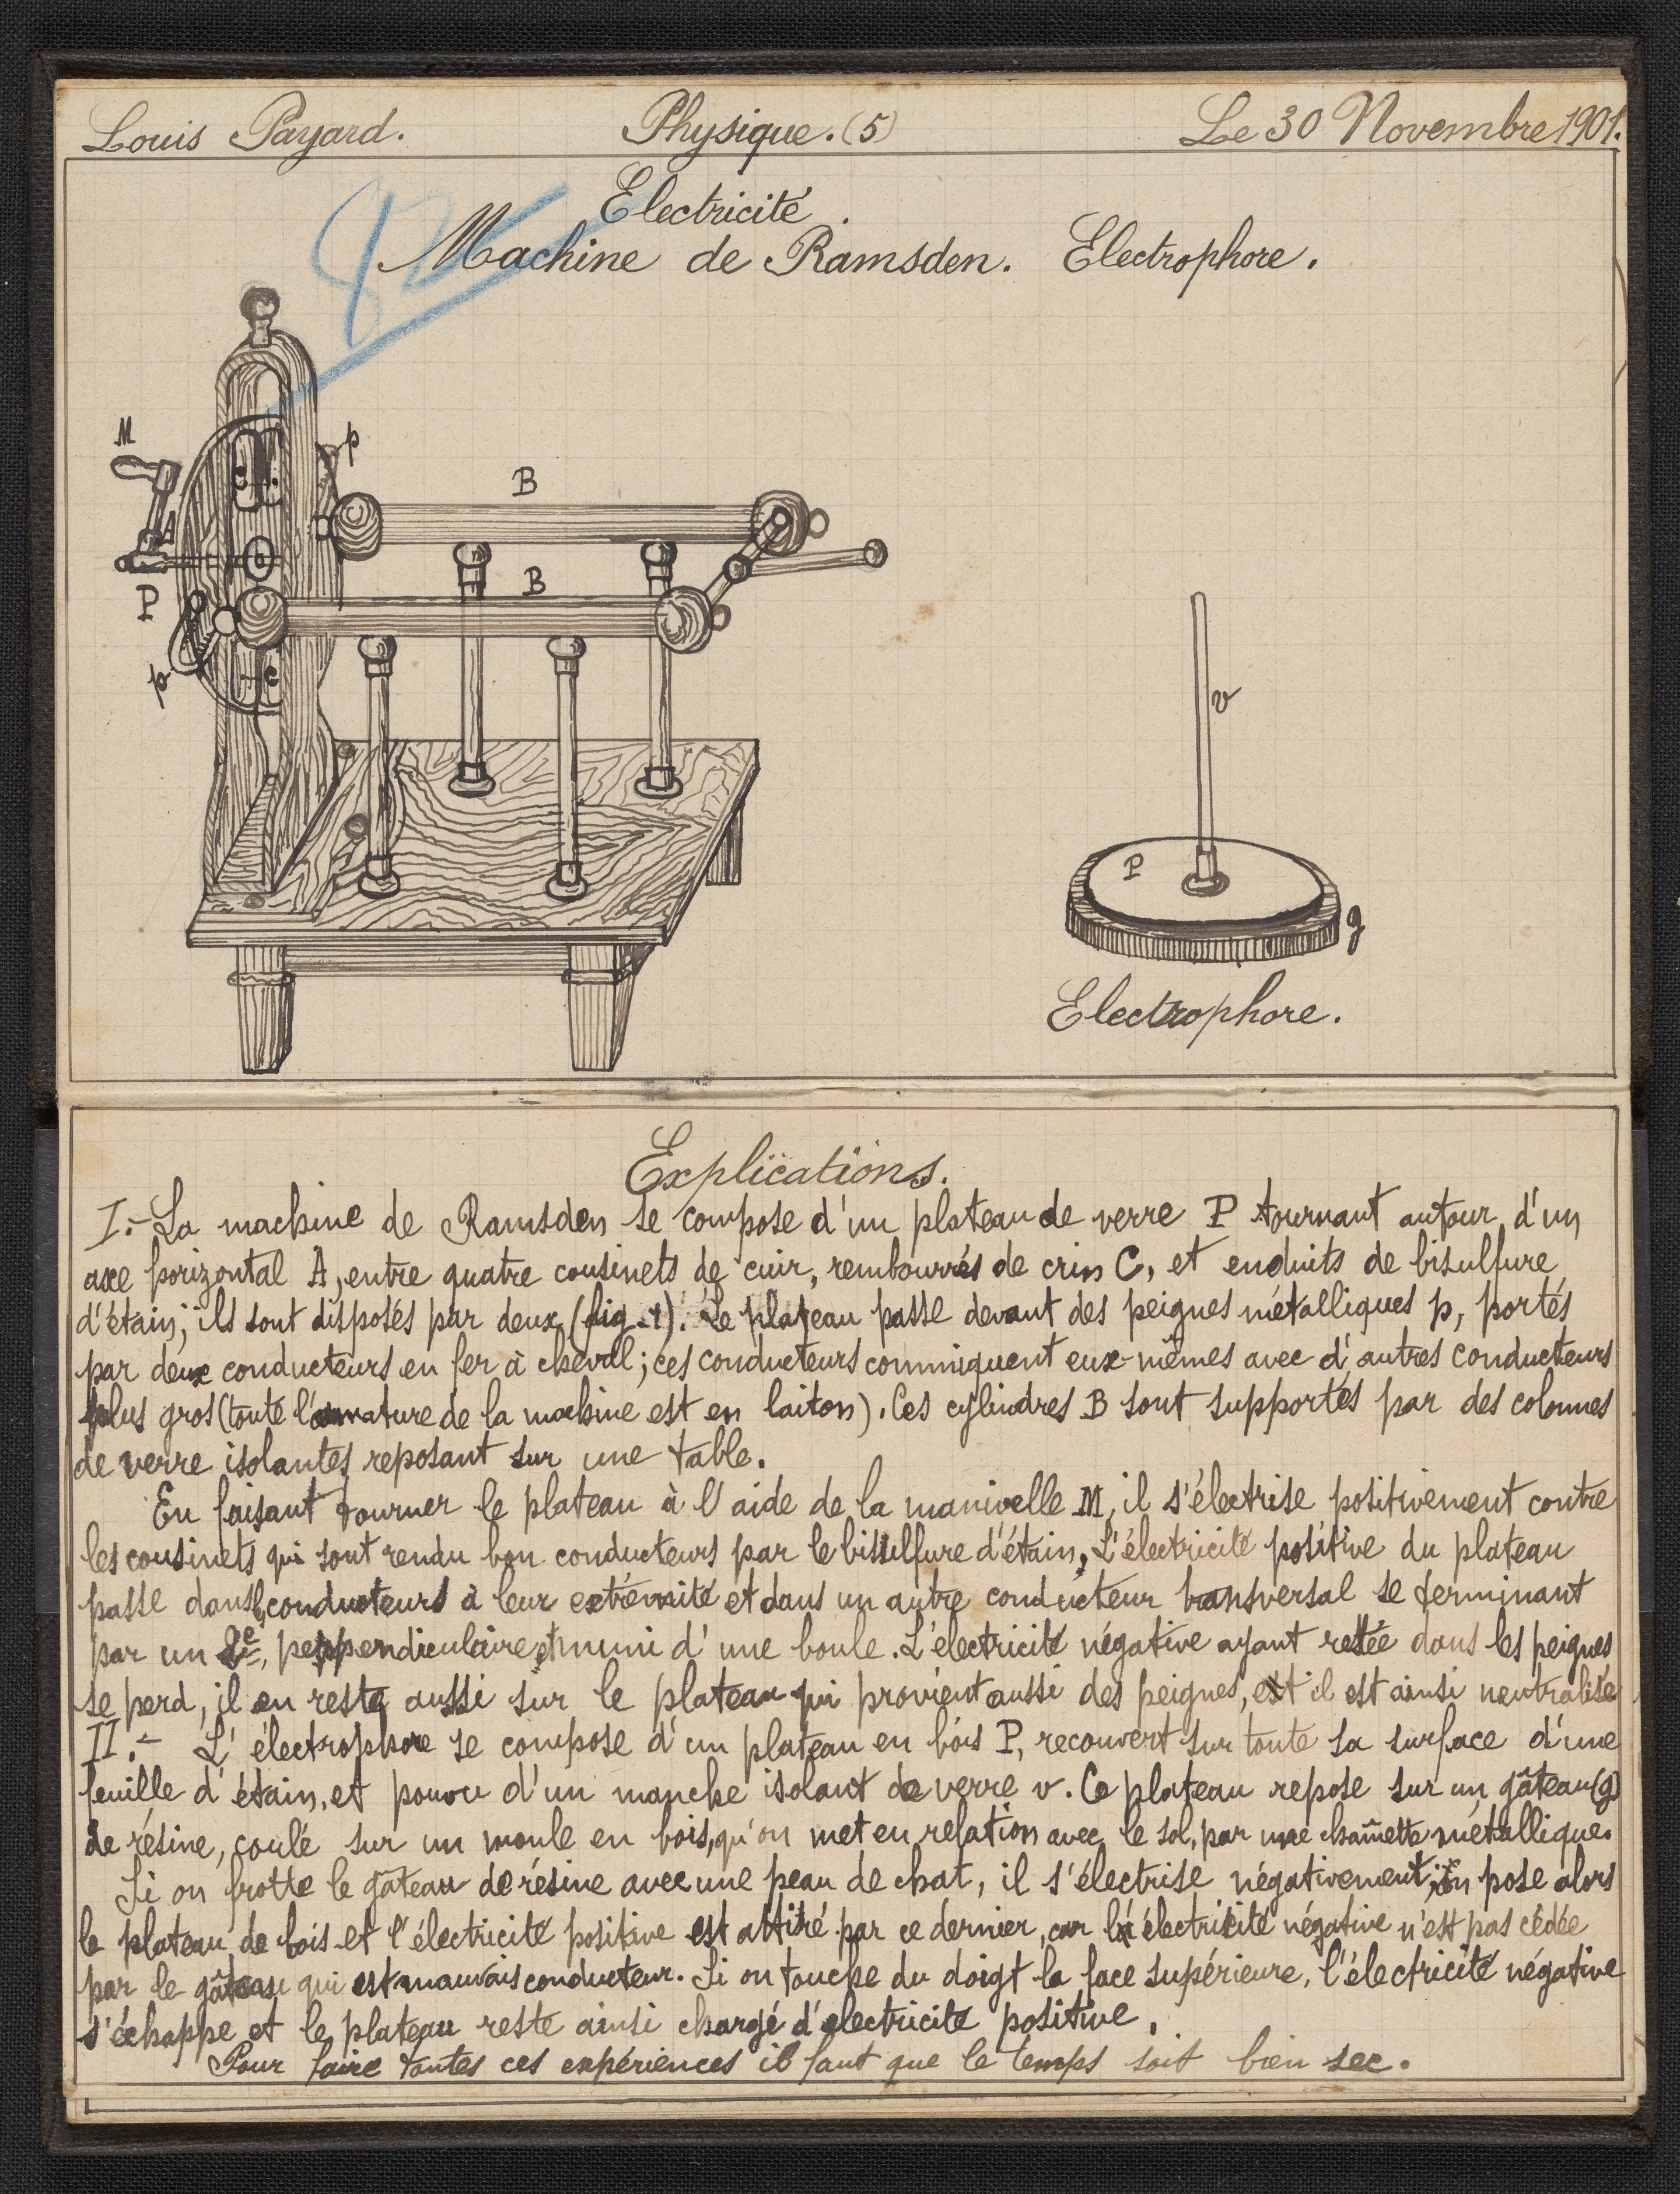 Louis Payard. Physique. (5) Le 30 Novembre 1901.
Electricité.
Machine de Ramsden. Electrophore.
M
p
B
A
B
P
p
c
v
P
g
Electrophore.
Explications.
I.- La machine de Ramsden se compose d'un plateau de verre P tournant autour d'un
axe horizontal A, entre quatre cousinets de cuir, rembourrés de crin C, et enduits de bisulfure
d'étain; ils sont disposés par deux (fig. 1). Le plateau passe devant des peignes métalliques p, portés
par deux conducteurs en fer à cheval; ces conducteurs communiquent eux-mêmes avec d'autres conducteurs
plus gros (toute l'armature de la machine est en laiton). Ces cylindres B sont supportés par des colonnes
de verre isolantes reposant sur une table.
En faisant tourner le plateau à l'aide de la manivelle M, il s'électrise positivement contre
les cousinets qui sont rendu bon conducteurs par le bisulfure d'étain. L'électricité positive du plateau
passe dans conducteurs à leur extrémité et dans un autre conducteur transversal se terminant
par un 2e, perpendiculaire et muni d'une boule. L'électricité négative ayant restée dans les peignes
se perd, il en reste aussi sur le plateau qui provient aussi des peignes, et il est ainsi neutralisé
II.- L'électrophore se compose d'un plateau en bois P, recouvert sur toute sa surface d'une
feuille d'étain, et pouvu d'un manche isolant de verre v. Ce plateau repose sur un gâteau (g)
de résine, coulé sur un moule en bois, qu'on met en relation avec le sol, par une chaînette métallique.
Si on frotte le gâteau de résine avec une peau de chat, il s'électrise négativement; on pose alors
le plateau de bois et l'électricité positive est attiré par ce dernier, car l'électricité négative n'est pas cédée
par le gâteau qui est mauvais conducteur. Si on touche du doigt la face supérieure, l'électricité négative
s'échappe et le plateau reste ainsi chargé d'electricité positive.
Pour faire toutes ces expériences il faut que le temps soit bien sec.